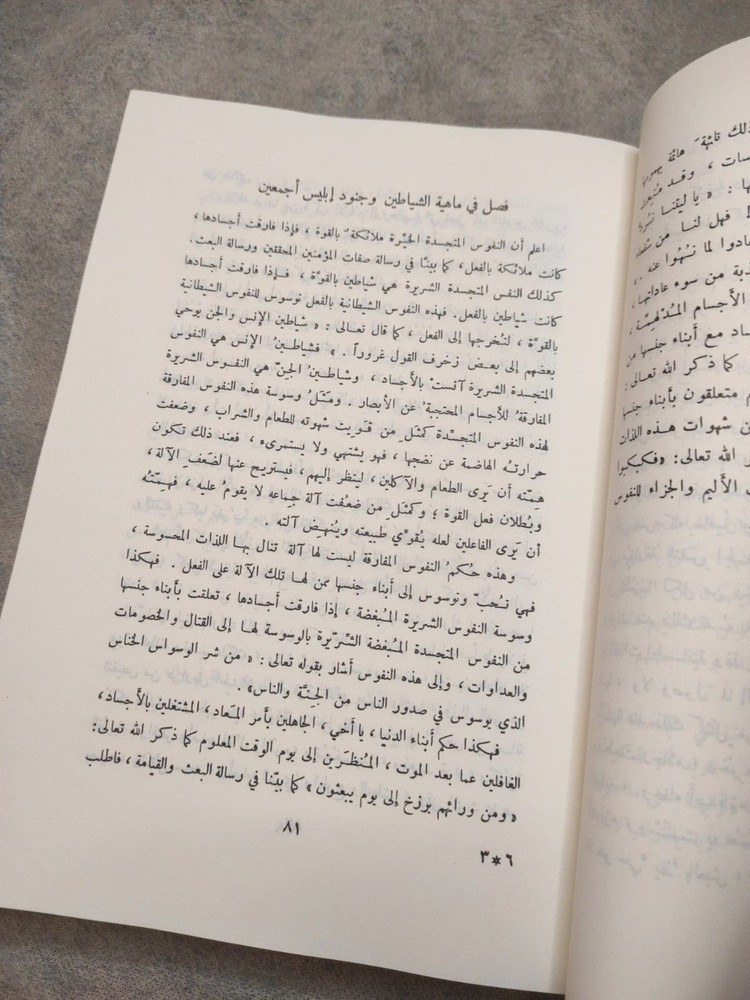 فصل في ماهية الشياطين وجنود إبليس أجمعين
اعلم أن النفوس المتجسدة الخيِّرة ملائكة ٌ بالقوة ، فإذا فارقت أجسادها ،
كانت ملائكة بالفعل ، كما بيّنّا في رسالة صفات المؤمنين المحققين ورسالة البعث.
كذلك النفس المتجسدة الشريرة هي شياطين بالقوّة ، فإذا فارقت أجسادها
كانت شياطين بالفعل. فهذه النفوس الشيطانية بالفعل توسوس للنفوس الشيطانية
بالقوّة ، لتُخرجها إلى الفعل ، كما قال تعالى : « شياطين الإنس والجن يوحي
بعضهم إلى بعض زخرف القول غروراً . » فشياطينُ الإنس هي النفوس
المتجسدة الشريرة آنست ْ بالأجساد ، وشياطينُ الجنّ هي النفوس الشريرة
المفارقةُ للأجسام المحتجبةُ عن الأبصار . ومثَلُ وسوسة هذه النفوس المفارقة
لهذه النفوس المتجسّدة كمثَلِ من قَوِيت شهوته للطعام والشراب ، وضعفت
حرارتهُ الهاضمة عن نضجها ، فهو يشتهي ولا يستمرىء ، فعند ذلك تكون
هِمّته أن يَرى الطعام والآكلين ، لينظر إليهم ، فيستريح عنها لضَعفِ الآلة ،
وبُطلان فعل القوة ؛ وكمثَلِ من ضعُفت آلة جِماعه لا يقومُ عليه ، فهِمّتُه
أن يَرى الفاعلين لعله يُقوّي طبيعته ويُنهِضُ آلته .
وهذه حُكمُ النفوس المفارقة ليست لها آلة تنال بها اللذات المحسوسة ،
فهي تحُبّ وتوسوس إلى أبناء جنسها ممن لها تلك الآلة على الفعل . فهكذا
وسوسة النفوس الشريرة المُبغضة ، إذا فارقت أجسادها ، تعلقت بأبناء جنسها
من النفوس المتجسدة المُبغضة الشرّيرة بالوسوسة لها إلى القتال والخصومات
والعداوات ، وإلى هذه النفوس أشار بقوله تعالى : « من شر الوسواس الخناس
الذي يوسوس في صدور الناس من الجِنّة والناس» .
فهكذا حكم أبناء الدنيا ، يا أخي ، الجاهلين بأمر المَعاد ، المشتغلين بالأجساد ،
الغافلين عما بعد الموت ، المُنظَرين إلى يوم الوقت المعلوم كما ذكر الله تعالى:
« ومن ورائهم برزخ إلى يوم يبعثون » كما بيّنا في رسالة البعث والقيامة ، فاطلب
٨١
٦*٣
ذلك تائهةَ هائمة
يا ليتنا نُردّ
فهل لنا من
لما نُهُوا عنه .
من سوء عاداتها ،
الأجسام
مع أبناء جنسها من
كما ذكر الله تعالى :
متعلقون بأبناء جنسها
شهوات هذه اللذات
الله تعالى: «فكبكبوا
الأليم والجزاء للنفوس